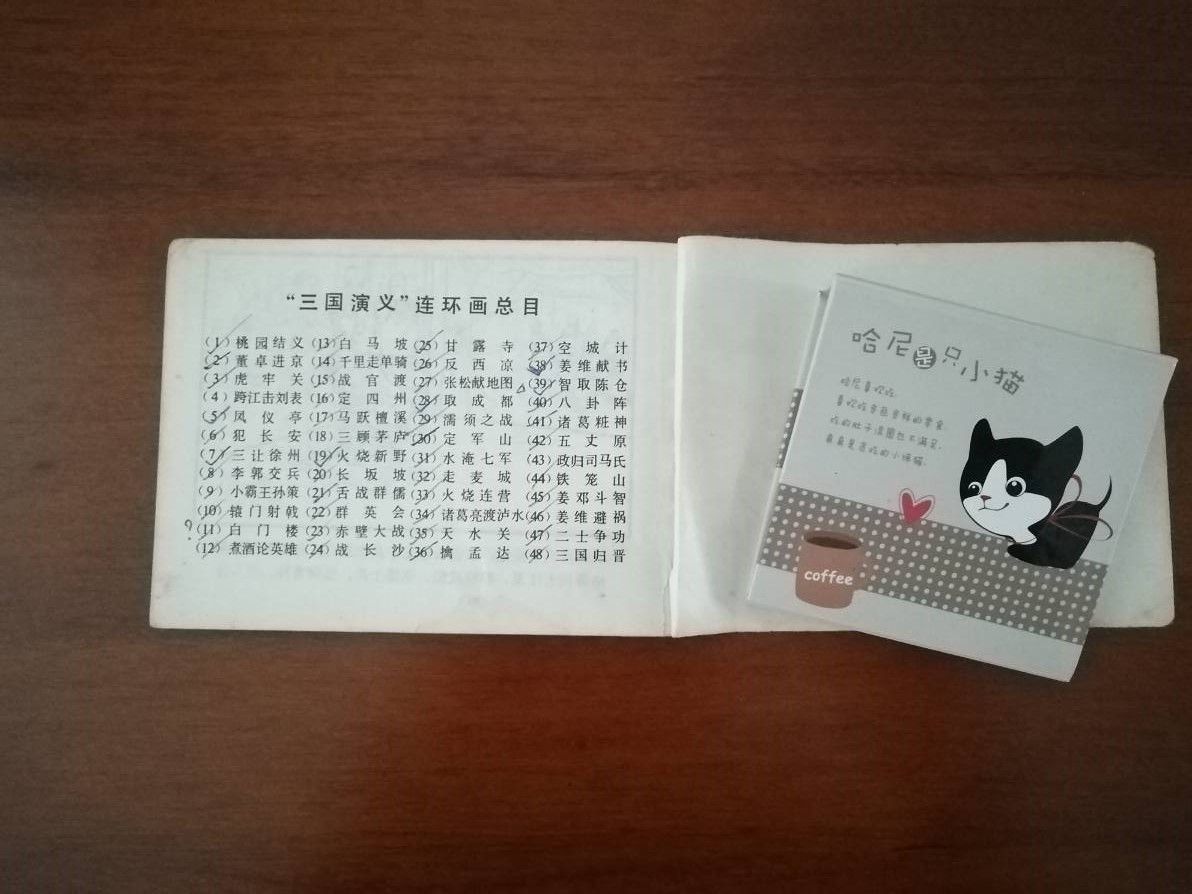 “三国演义”连环画总目
(1) 桃园结义
(2) 董卓进京
(3) 虎牢关
(4) 跨江击刘表
(5) 凤仪亭
(6) 犯长安
(7) 三让徐州
(8) 李郭交兵
(9) 小霸王孙策
(10) 辕门射戟
?
(11) 白门楼
(12) 煮酒论英雄
(13) 白马坡
(14) 千里走单骑
(15) 战官渡
(16) 定四州
(17) 马跃檀溪
(18) 三顾茅庐
(19) 火烧新野
(20) 长坂坡
(21) 舌战群儒
(22) 群英会
(23) 赤壁大战
(24) 战长沙
(25) 甘露寺
(26) 反西凉
(27) 张松献地图
(28) 取成都
(29) 濡须之战
(30) 定军山
(31) 水淹七军
(32) 走麦城
(33) 火烧连营
(34) 诸葛亮渡泸水
(35) 天水关
(36) 擒孟达
(37) 空城计
(38) 姜维献书
(39) 智取陈仓
(40) 八卦阵
(41) 诸葛粧神
(42) 五丈原
(43) 政归司马氏
(44) 铁笼山
(45) 姜邓斗智
(46) 姜维避祸
(47) 二士争功
(48) 三国归晋
哈尼是只小猫
哈尼喜欢吃,
喜欢吃各色各样的零食,
吃的肚子圆也不满足,
真真是贪吃的小馋猫.
coffee